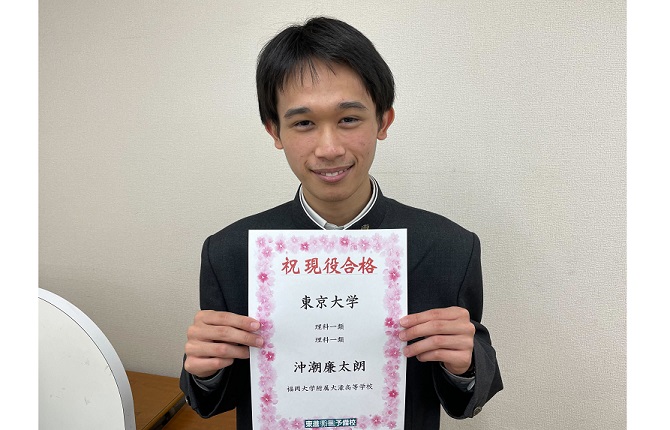 祝 現役合格
東京大学
理科一類
理科一類
沖潮廉太朗
福岡大学附属大濠高等学校
東進衛星予備校